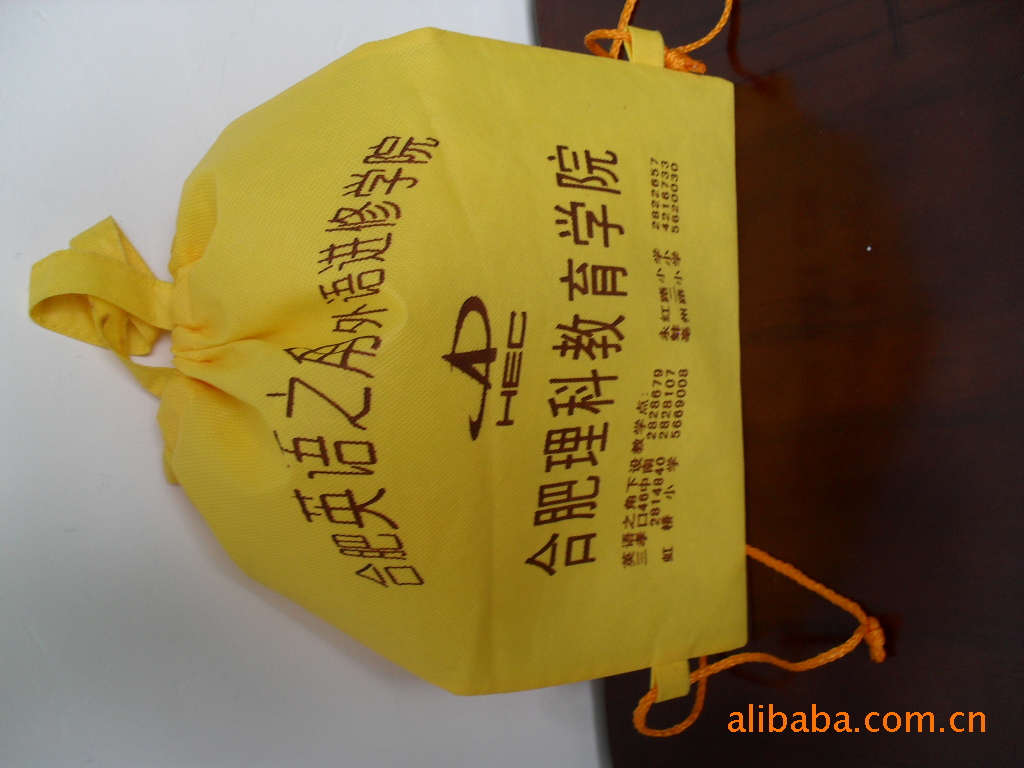 合肥英语之角外语进修学院
HEC
合肥理科教育学院
英语之角下设教学点:
三孝口46中南 2828679 永红路小学 2822657
2814840 2828107 三小 4216733
虹桥小学 5669008 亳州路小学 5620030
alibaba.com.cn